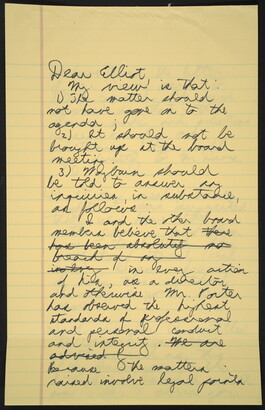 Dear Elliot,
My view is that:
1) The matter should
not have gone on to the
agenda;
2) It should not be
brought up at the board
meeting.
3) Mayburn should
be told to answer any
inquiries, in substance,
as follows:
I and the other board
members believe that there
has been absolutely no
breach of any
involve, in every action
of his, as a director
and otherwise, Mr. Porter
has observed the highest
standards of professional
and personal conduct
and integrity. We are
advised
because of the matters
raised involve legal points